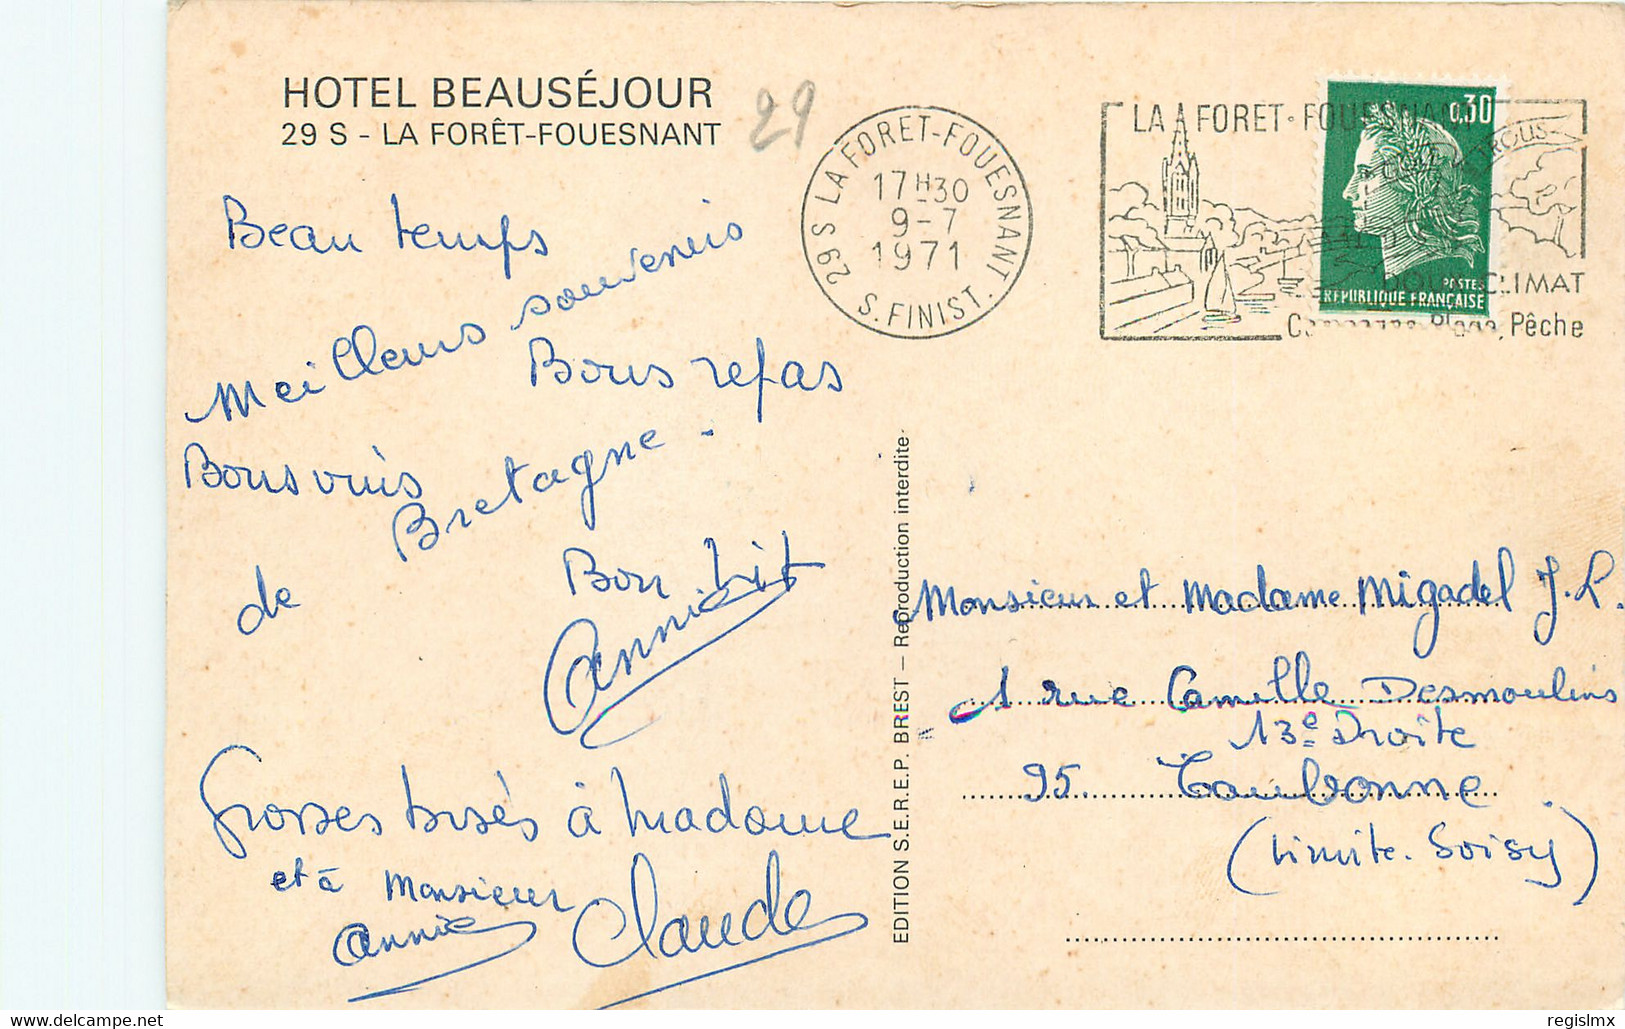 HOTEL BEAUSÉJOUR
29 S - LA FORÊT-FOUESNANT
29
29 S LA FORET-FOUESNANT
17H30
9-7
1971
S. FINIST.
LA FORET-FOUESNANT
0,30
POSTES
REPUBLIQUE FRANÇAISE
DOUX CLIMAT
Plage, Pêche
Beau temps
Meilleurs souvenirs
Bons repas
Bons vins
de Bretagne.
Bon lit
Annie
Grosses bisés à Madame
et à Monsieur
Annie
Claude
EDITION S.E.R.E.P. BREST — Reproduction interdite
Monsieur et Madame Migadel J. L.
1 rue Camille Desmoulins
13e Droite
95. Eaubonne
(limite. Soisy)
delcampe.net
regislmx